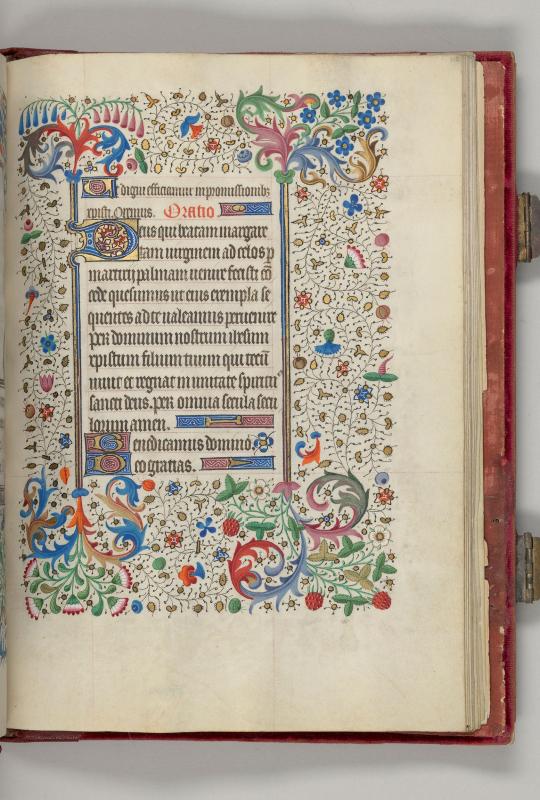 Ut digni efficiamur in promissionib;
cristi. Oremus. Oratio
Deus qui beatam margare
tam virginem ad celos p
martirii palmam venire fecisti cō
cede quesumus ut eius exempla se
quentes ad te valeamus pervenire
Per dominum nostrum ihesum
xpistum filium tuum qui tecū
vivit et regnat in unitate spiritus
sancti deus. per omnia secula secu
lorum amen.
Benedicamus domino
Deo gratias.